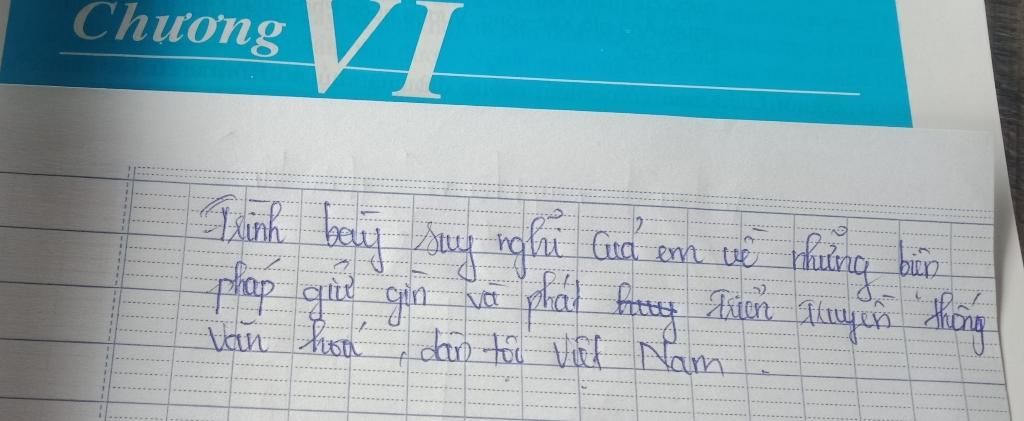 Chương VI
Trình bày suy nghĩ của em về những biện
pháp giữ gìn và phát huy triển truyền thống
văn hoá, dân tộc Việt Nam.